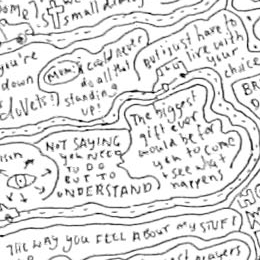 small dinn
you're
down
dUVets!)
Mum: I could never
do all that
standing
up!
But i just have to
live with
your
choice
BR
D
NOT SAYING
you NEED
TO DO
BUT TO
UNDERSTAND
The biggest
gift ever
would be for
you to come
& see what
happens
THE WAY YOU FEEL ABOUT MY STUFF
prayers